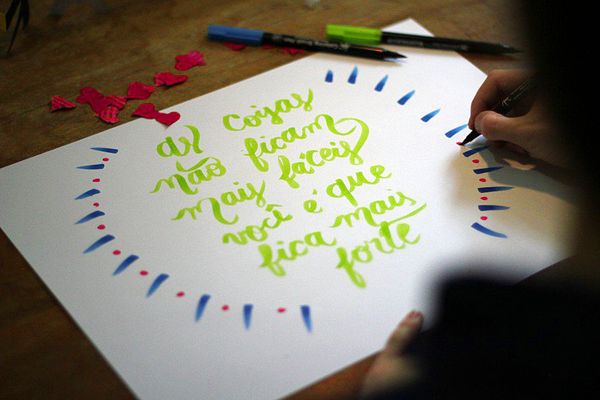 as coisas
não ficam
mais fáceis
você é que
fica mais
forte